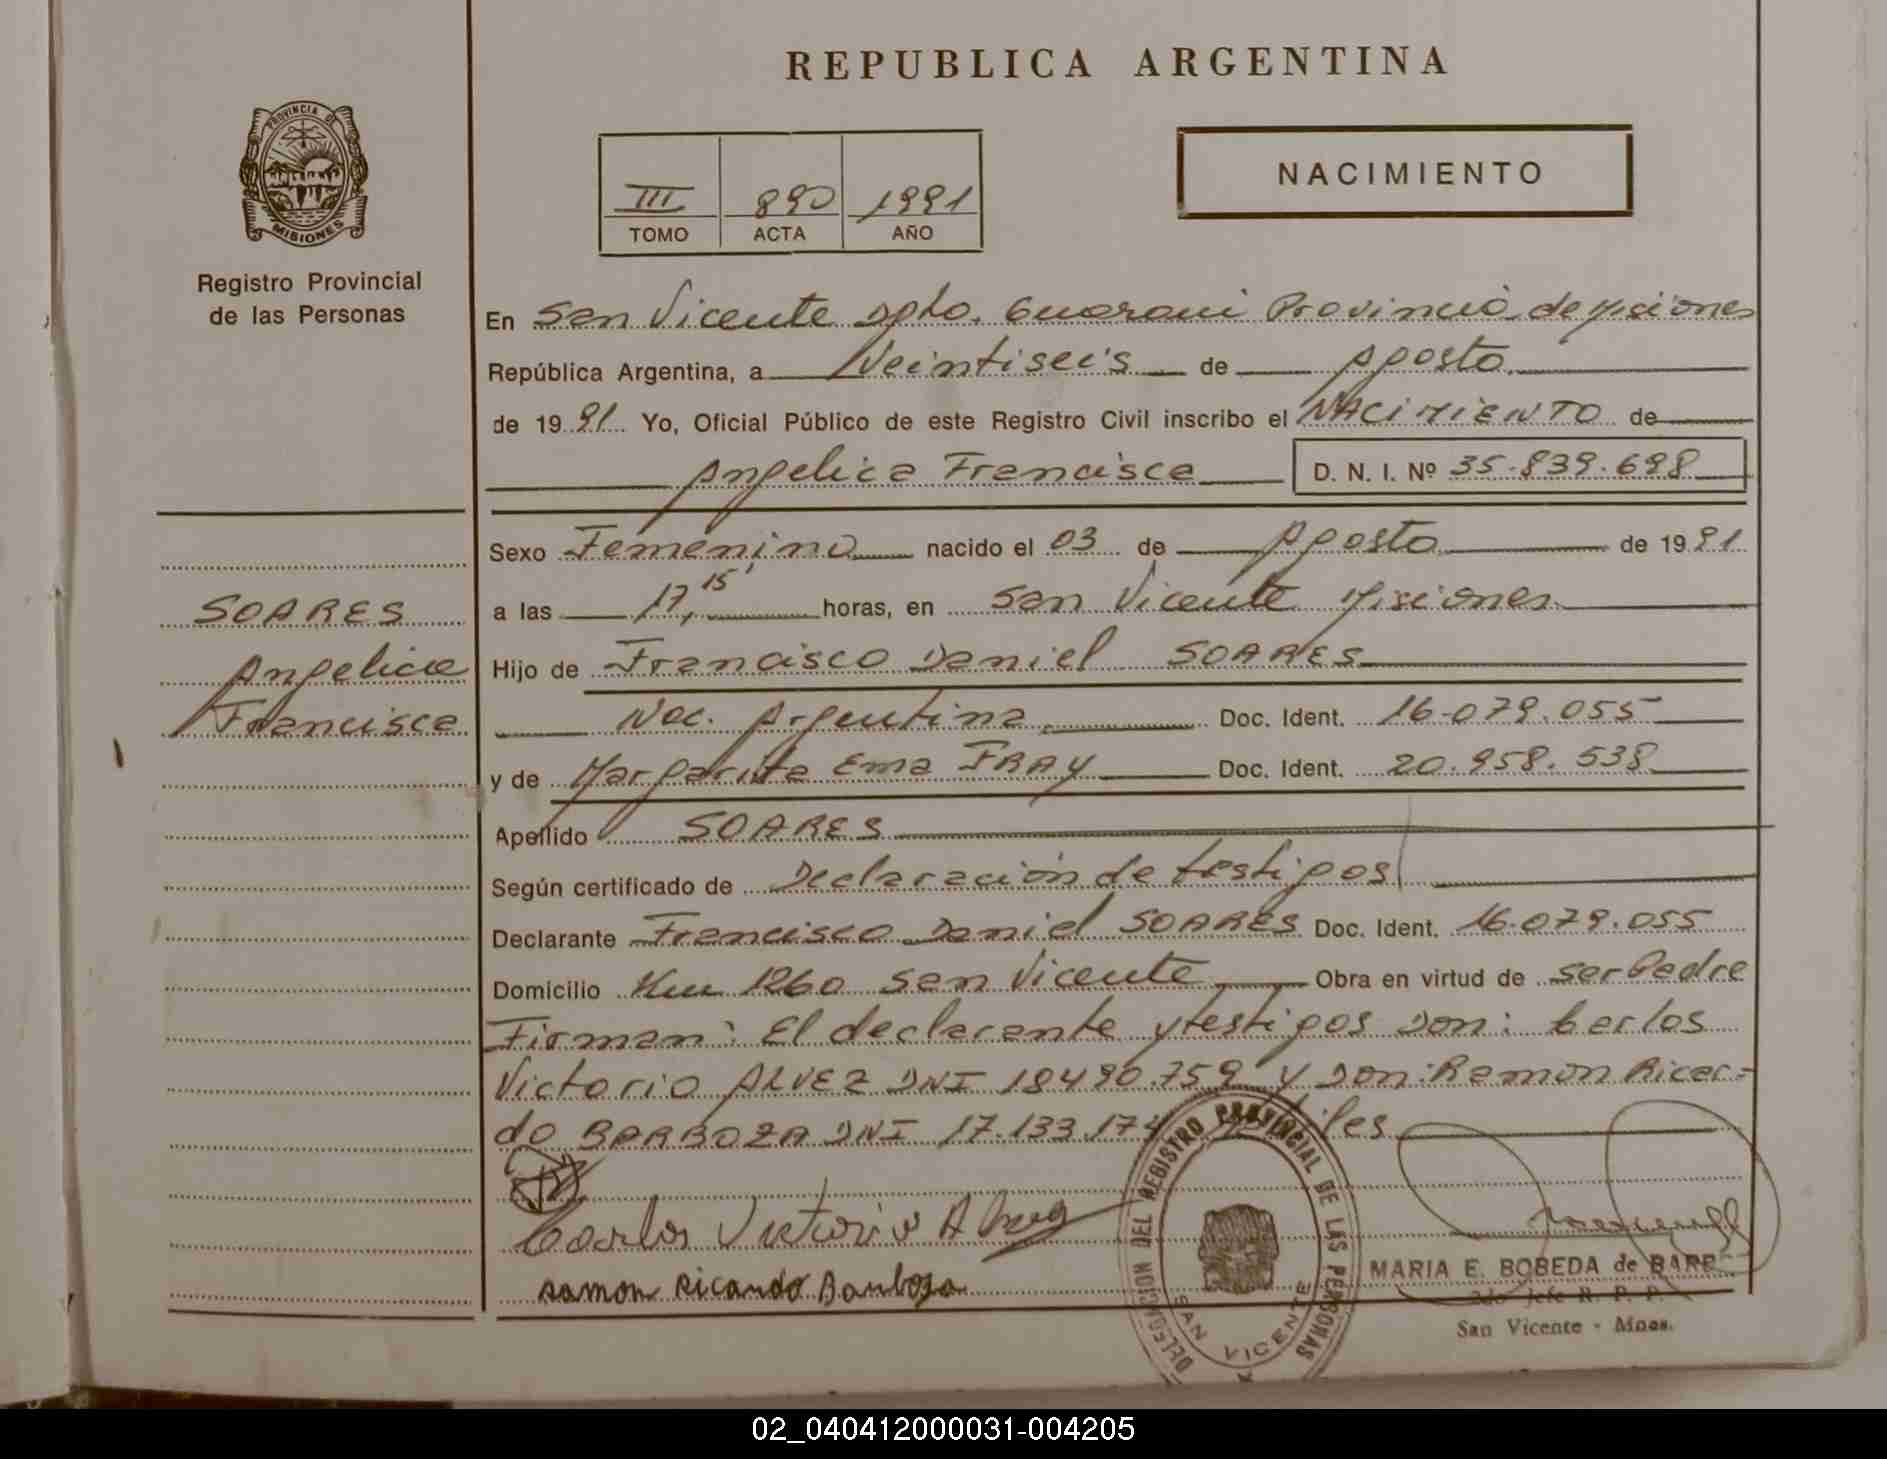 REPUBLICA ARGENTINA
PROVINCIA DE
MISIONES
Registro Provincial
de las Personas
III 890 1991
TOMO ACTA AÑO
NACIMIENTO
En San Vicente Dpto. Guarani Provincia de Misiones
República Argentina, a Veintiseis de Agosto
de 1991 Yo, Oficial Público de este Registro Civil inscribo el NACIMIENTO de
Angelica Francisca D. N. I. Nº 35.839.698
Sexo Femenino nacido el 03 de Agosto de 1991
a las 17,15' horas, en San Vicente Misiones
Hijo de Francisco Daniel SOARES
Nac. Argentina Doc. Ident. 16.079.055
y de Margarita Ema FRAY Doc. Ident. 20.958.538
Apellido SOARES
Según certificado de Declaración de testigos
Declarante Francisco Daniel SOARES Doc. Ident. 16.079.055
Domicilio Km 1260 San Vicente Obra en virtud de ser Padre
Firman: El declarante y testigos Don: Carlos
Victorio ALVEZ DNI 18490.759 y Don: Ramon Ricar-
do BARBOZA DNI 17.133.174
SOARES
Angelica
Francisca
Carlos Victorio Alvez
Ramon Ricardo Barboza
DELEGACION DEL REGISTRO PROVINCIAL DE LAS PERSONAS
SAN VICENTE
MARIA E. BOBEDA de
2do Jefe R. P. P.
San Vicente - Mnes.
02_040412000031-004205